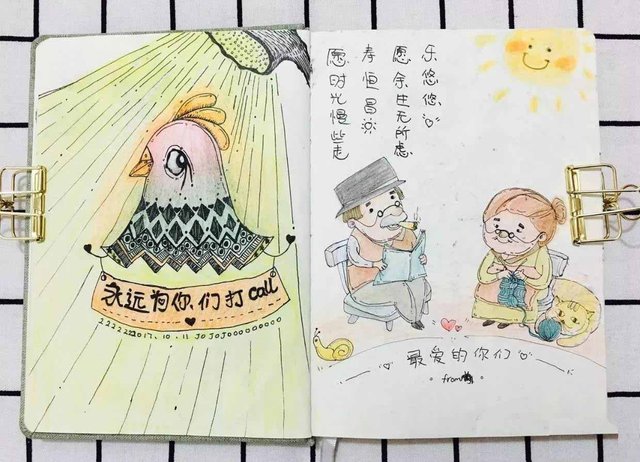 永远为你们打call
2017.10.11
乐悠悠
愿余生无所虑
寿恒昌
愿时光慢些走
最爱的你们
from